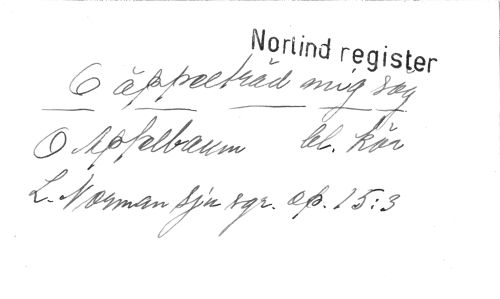 Norlind register
O äppelträd mig säg
O Apfelbaum bl. kör
L. Norman sju sgr. op. 15:3